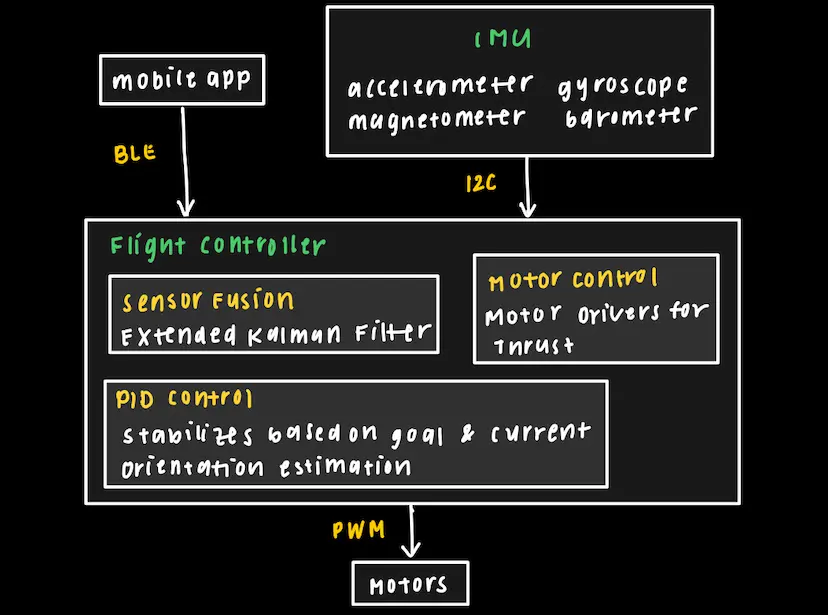 IMU
mobile app
accelerometer gyroscope
magnetometer barometer
BLE
I2C
Flight Controller
Sensor Fusion
Extended Kalman Filter
Motor Control
Motor Drivers for
Thrust
PID Control
Stabilizes based on goal & current
orientation estimation
PWM
Motors